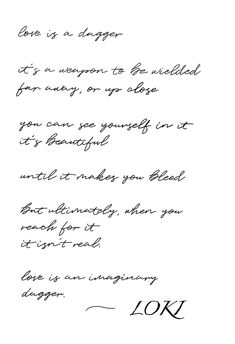 love is a dagger
it's a weapon to be wielded
far away, or up close
you can see yourself in it
it's beautiful
until it makes you bleed
but ultimately, when you
reach for it
it isn't real.
love is an imaginary
dagger.
~ LOKI